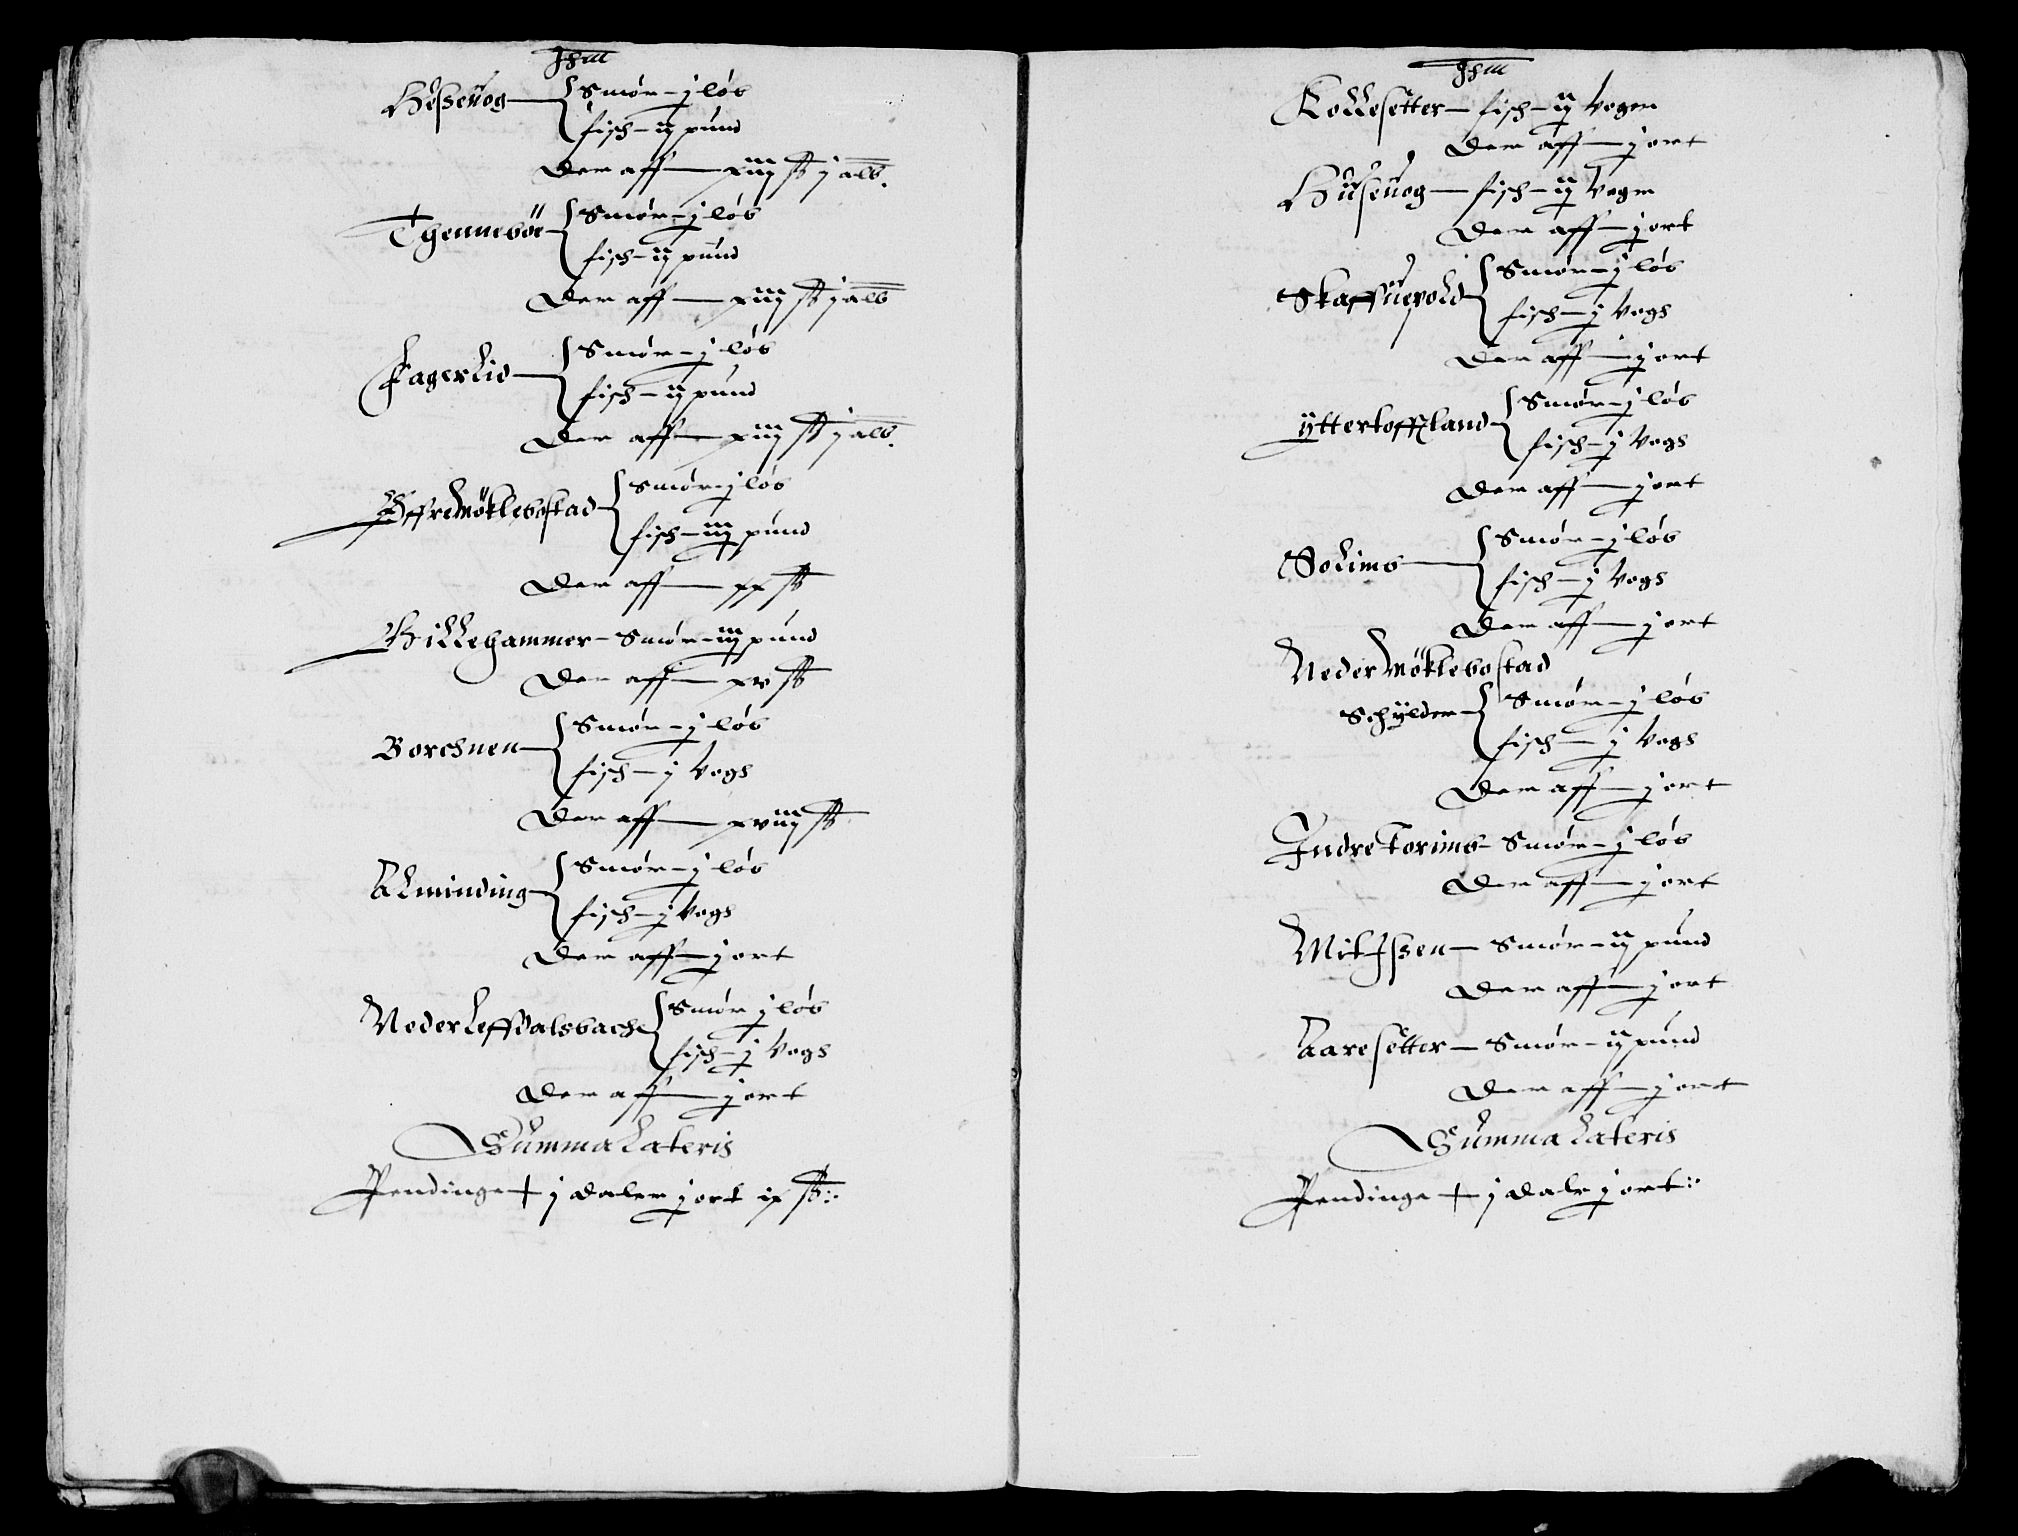 Jhm
Hesseuog — Smør — j løb
fisch — ij pund
Der aff — xiiij ß j alb.
Thenneböe — Smør — j løb
fisch — ij pund
Der aff — xiiij ß j alb
Fagerlid — Smør — j løb
fisch — ij pund
Der aff — xiiij ß j alb.
Øffre Möklebostad — Smør — j løb
fisch — iiij pund
Der aff — xx ß
Hillehammer — Smør — iiij pund
Der aff — xv ß
Borchnen — Smør — j løb
fisch — j Vogs
Der aff — xviiij ß
Alminding — Smør — j løb
fisch — j Vogs
Der aff — j ort
Neder Leffdalsbache — Smør j løb
fisch — j Vogs
Der aff — j ort
Summa Lateris
Pendinge + j daler j ort ix ß
Jhm
Kollesetter — fisch — ij Voger
Der aff — j ort
Huseuog — fisch — ij Voger
Der aff — j ort
Skaffuepold — Smør — j løb
fisch — j Vogs
Der aff — j ort
ÿtterloffland — Smør — j løb
fisch — j Vogs
Der aff — j ort
Solims — Smør — j løb
fisch — j Vogs
Der aff — j ort
Neder Möklebostad
Schÿlder — Smør — j løb
fisch — j Vogs
Der aff — j ort
Indre Torims — Smør — j løb
Der aff — j ort
Mit Jssen — Smør — ij pund
Der aff — j ort
Aaresetter — Smør — ij pund
Der aff — j ort
Summa Lateris
Pendinge + j dalr j ort